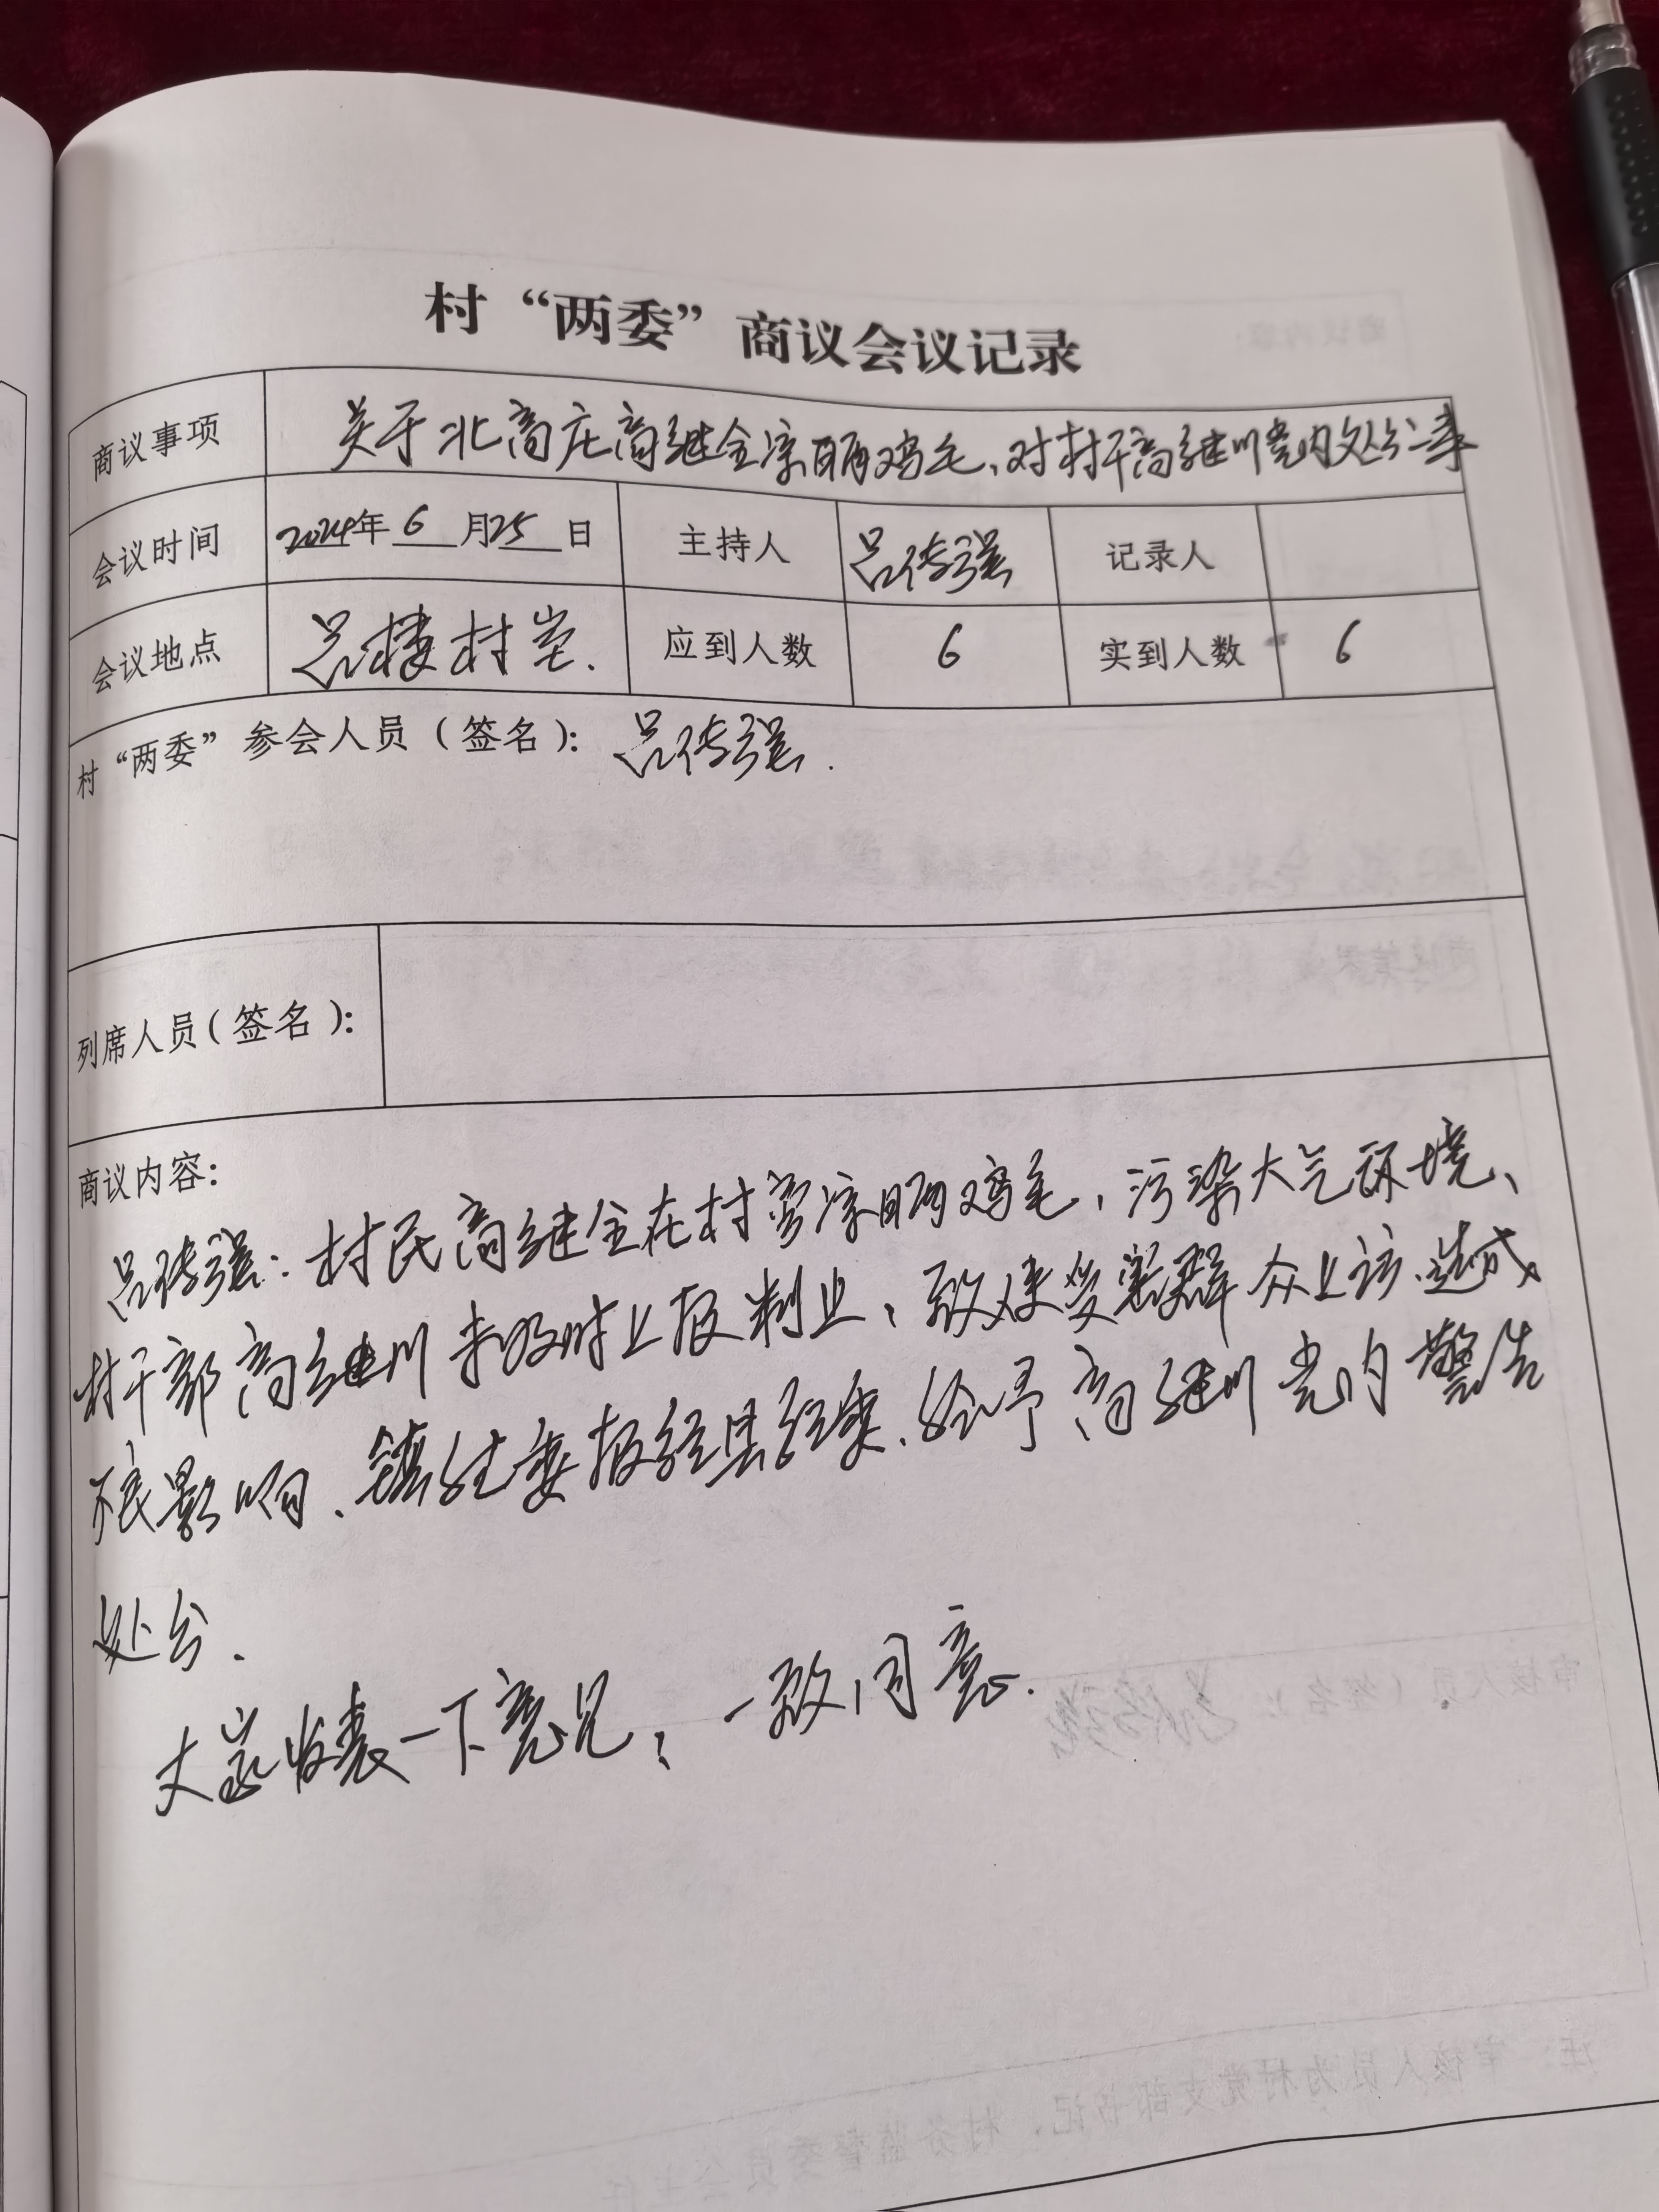 村“两委”商议会议记录
商议事项 关于北高庄高继全凉晒鸡毛、对村干高继川党内处分事
会议时间 2024年 6 月25 日 主持人 吕传强 记录人
会议地点 吕楼村室. 应到人数 6 实到人数 6
村“两委”参会人员（签名）： 吕传强.
列席人员（签名）：
商议内容：
吕传强：村民高继全在村旁凉晒鸡毛，污染大气环境、
村干部高继川未及时上报制止，致使受害群众上访.造成
不良影响、镇纪委报经县纪委、给予高继川党内警告
处分.
大家发表一下意见；一致同意.
审核人员（签名）：
注：审核人员为村党支部书记、村务监督委员会主任